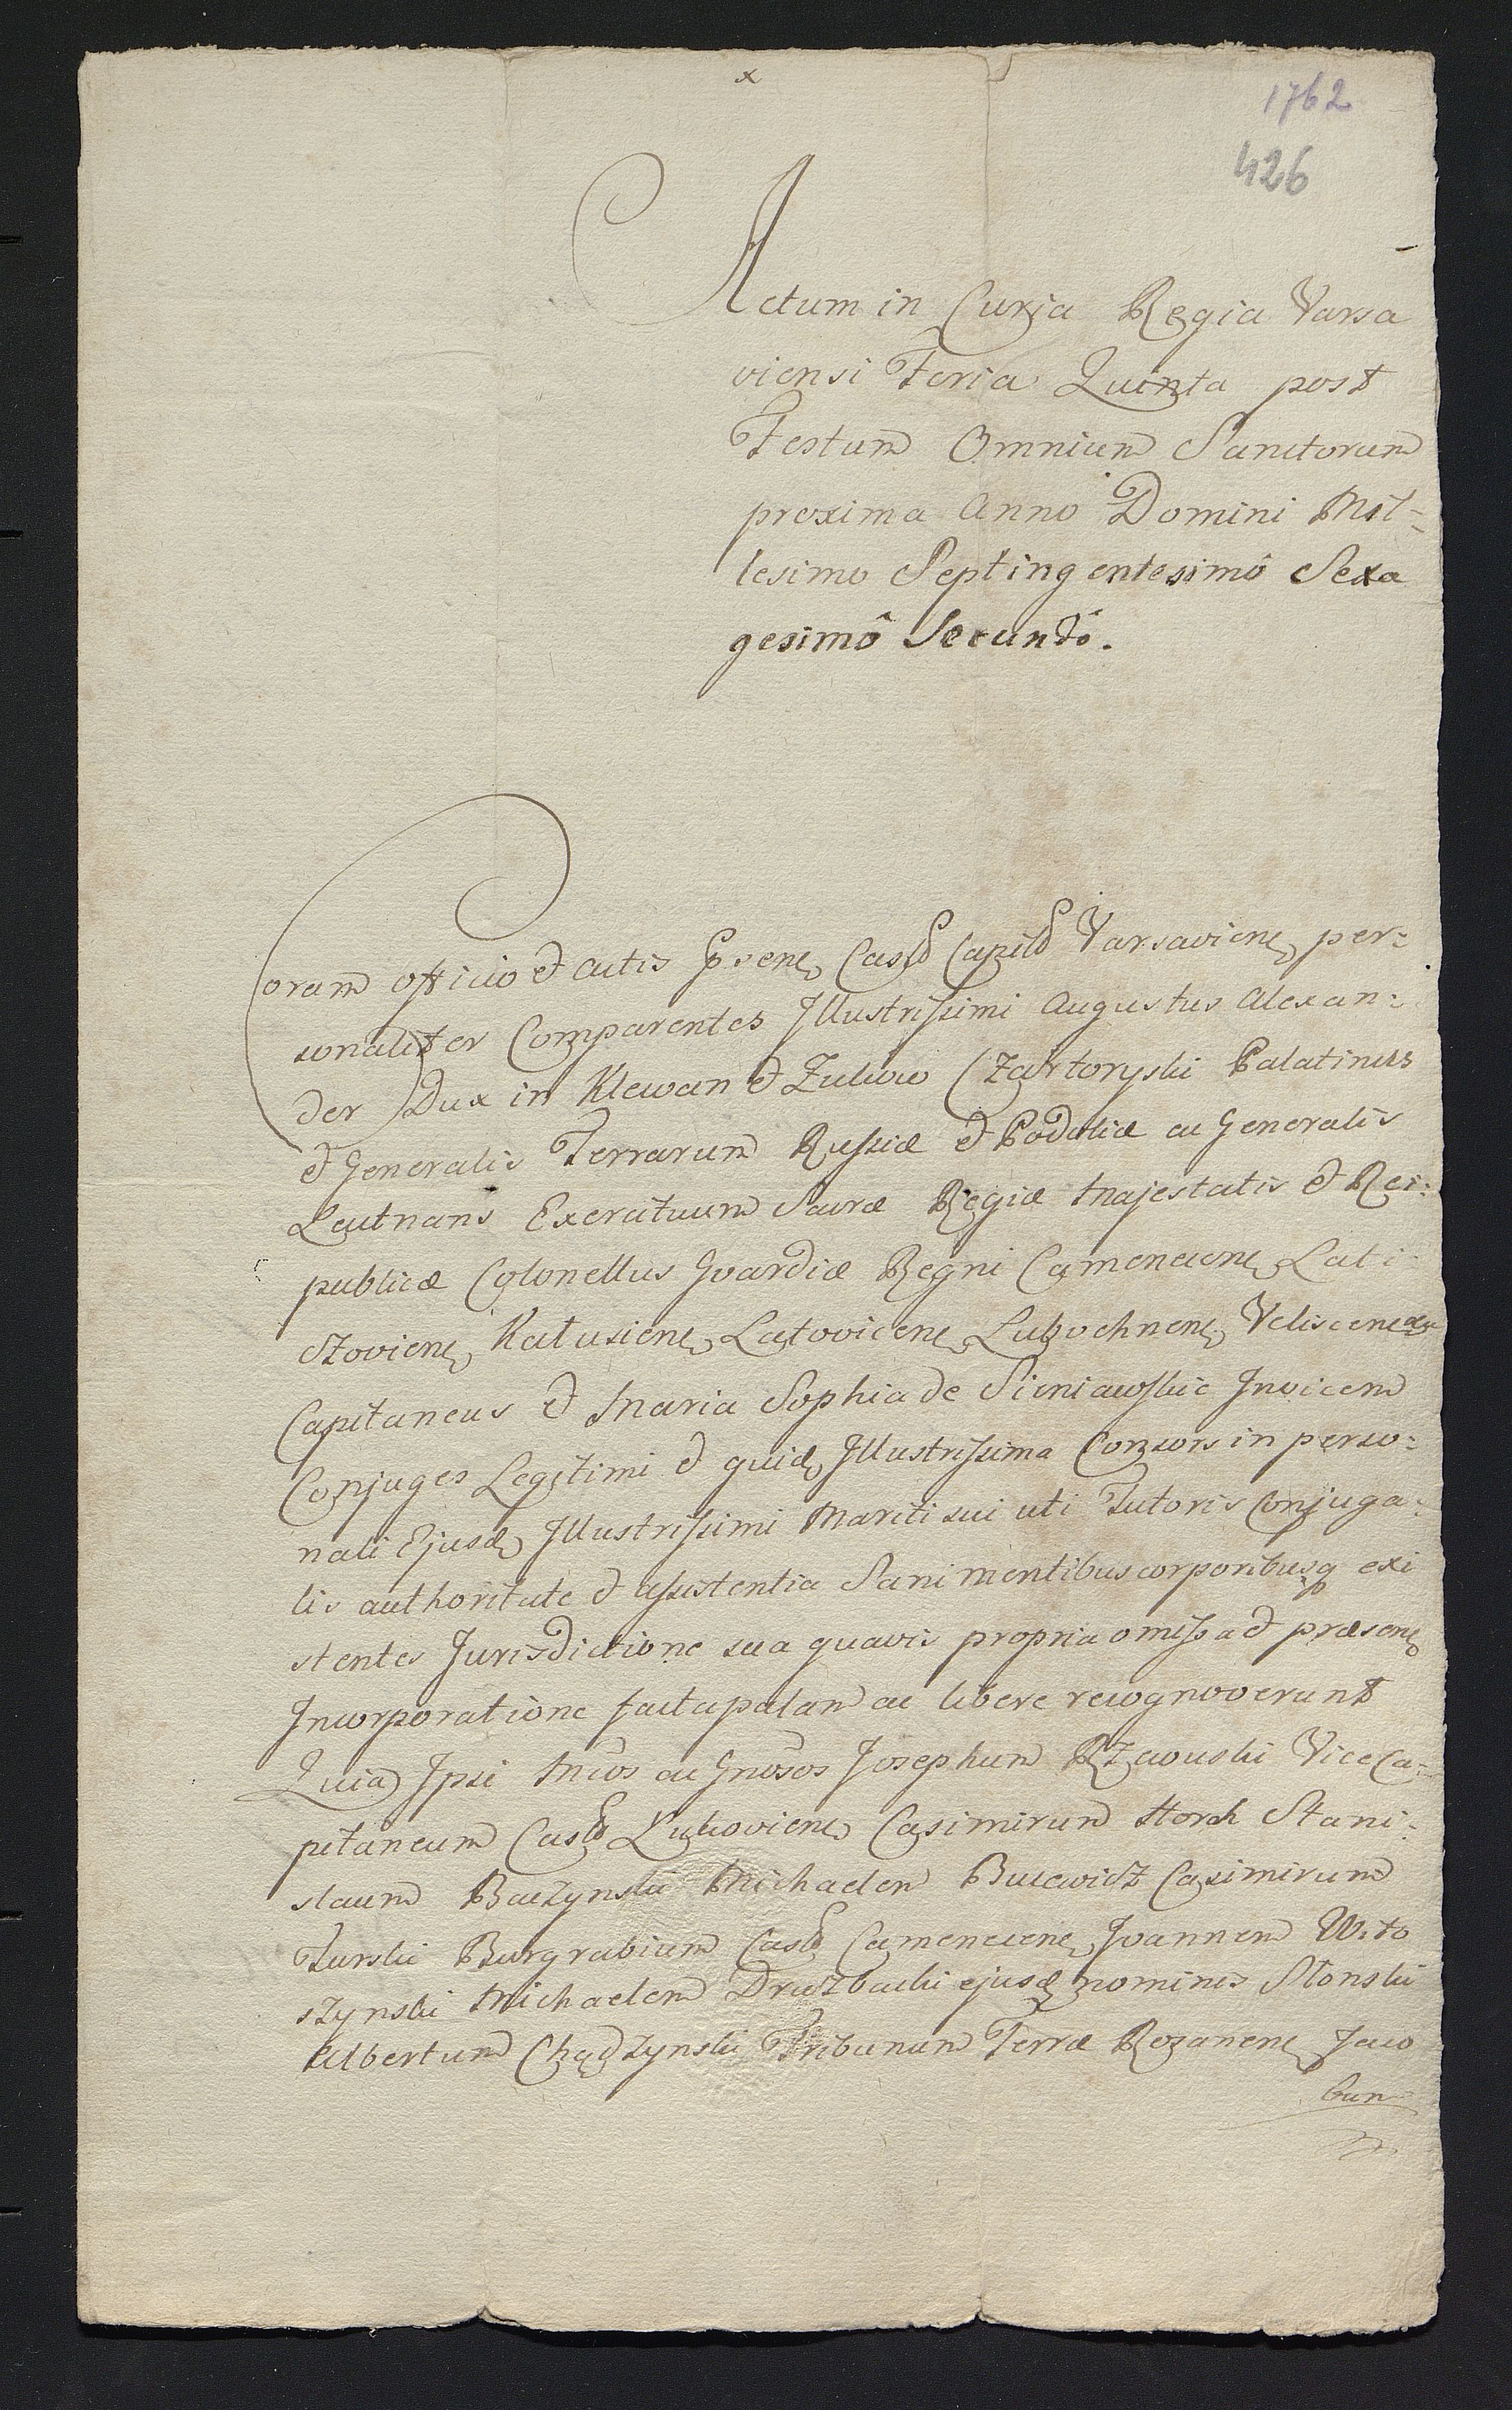 x
1762
426
Actum in Curia Regia Varsa
viensi Feria Quinta post
Festum Omnium Sanctorum
proxima Anno Domini Mil-
lesimo Septingentesimô Sexa
gesimô Secundô.
Coram officio et actis Castr Capitl Varsaviens per-
sonaliter Comparentes Illustrissimi Augustus Alexan-
der Dux in Klewan et Zukow Czartoryski Palatinus
et Generalis Terrarum Russiæ et Podoliæ ac Generalis
Leutnans Exercituum Sacræ Regiæ Majestatis et Rei-
publicæ Colonellus Gvardiæ Regni Camenecens Lati
czoviens Kałusiens Latovicens Lubochnens Veliscens
Capitaneus et Maria Sophia de Sieniawskie Invicem
Conjuges Legitimi et quid Illustrissima Consors in perso-
nali Ejusd Illustrissimi Mariti sui uti Tutoris Conjuga-
lis authoritate et assistentia Sani mentibus corporibusq exi
stentes Jurisdictione sua quavis propria omissa et præsens
Incorporatione facta palam ac libere recognoverunt
Quia Ipsi Mcos ac Gnosos Josephum Rzewuski Vice Ca-
pitaneum Castr Lukoviens Casimirum Horch Stani-
slaum Baczynski Michaelem Bucewicz Casimirum
Turski Burgrabium Castr Camenecens Joannem Wito
szynski Michaelem Druzbacki ejusd nominis Słonski
Albertum Chądzynski Tribunum Terræ Rozanens Jaco
bum